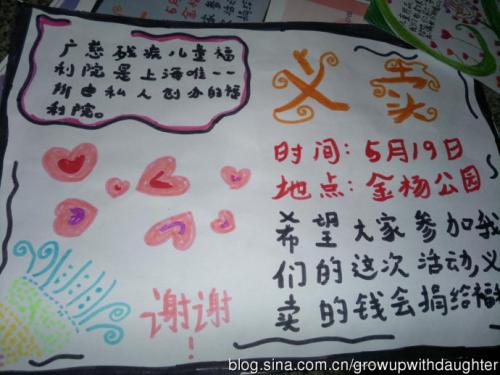 广慈残疾儿童福
利院是上海唯一一
所由私人创办的福
利院。
义卖
时间:5月19日
地点:金杨公园
希望大家参加我
们的这次活动,义
卖的钱会捐给福
谢谢!
blog.sina.com.cn/growupwithdaughter